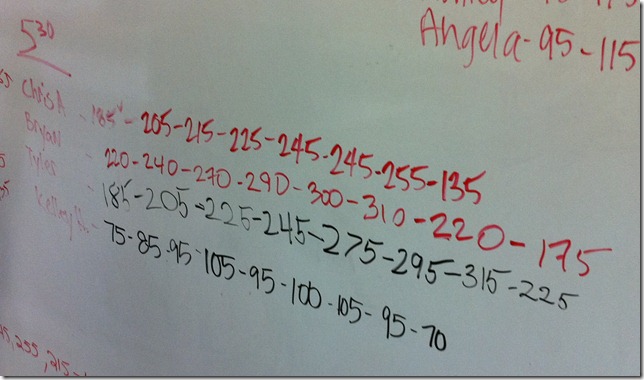 Angela-95-115
5:30
Chris A - 185 - 205-215-225-245-245-255-135
Bryan - 220-240-270-290-300-310-220-175
Tyler - 185-205-225-245-275-295-315-225
75-85-95-105-95-100-105-95-70
,255,215-